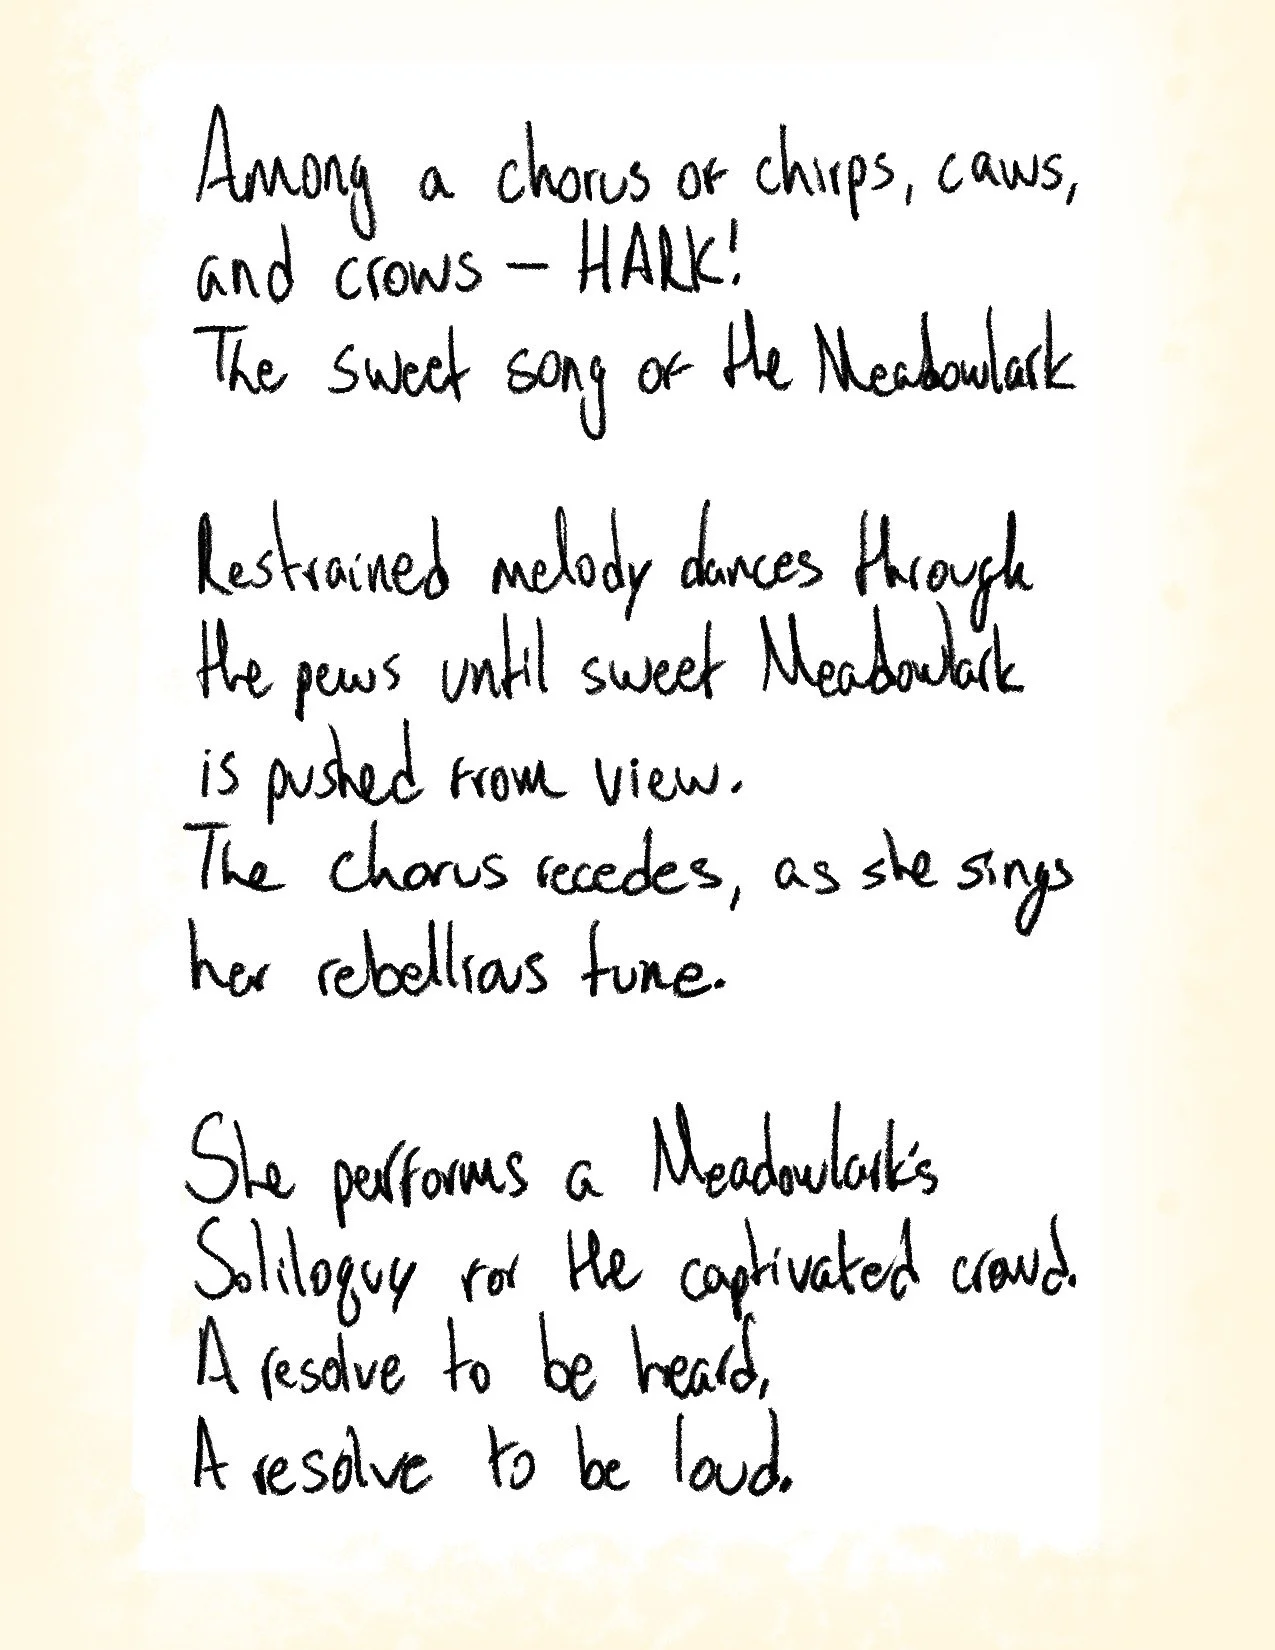 Among a chorus of chirps, caws,
and crows – HARK!
The sweet song of the Meadowlark
Restrained melody dances through
the pews until sweet Meadowlark
is pushed from view.
The chorus recedes, as she sings
her rebellious tune.
She performs a Meadowlark's
Soliloquy for the captivated crowd.
A resolve to be heard,
A resolve to be loud.